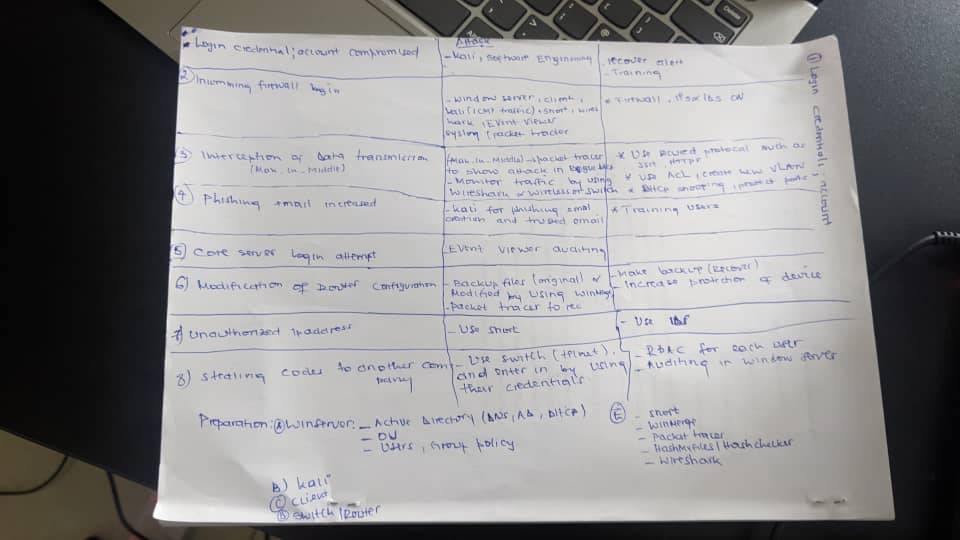 Attack
* Login credential; account compromised
- Kali, Software Engineering
- recover alert
- Training
① Login credentials, account
② Incomming firewall login
- Window server, client,
kali (ICMP traffic) + snort, wires
hark, Event Viewer
syslog (packet tracer
* Firewall, IPS or IDS ON
③ Interception of Data transmission
(Man. in. Middle)
(Man. in. Middle) - packet tracer
to show attack in
- Monitor traffic by using
Wireshark or wireless or switch
* Use secured protocol such as
SSH HTTPS
* Use ACL, create new VLAN
* DHCP snooping, protect ports
④ Phishing email increased
- kali for phishing email
creation and trused email
* Training users
⑤ Core server login attempt
- Event viewer auditing
6) Modification of router configuration
- Backup files (original) or
Modified by using WinMerge
- packet tracer to rec
- Make backup (Recover)
- Increase protection of device
7) unauthorized ip address
- Use snort
- Use
8) Stealing codes to another com
pany
- Use switch (telnet).
and enter in by using
their credentials
- RBAC for each user
- Auditing in window server
Preparation: Ⓐ Winserver: - Active Directory (DNS, AD, DHCP)
- OU
- Users, Group policy
B) kali
Ⓒ Client
Ⓓ switch / Router
Ⓔ - snort
- WinMerge
- Packet tracer
- HashMyFiles / Hashchecker
- Wireshark